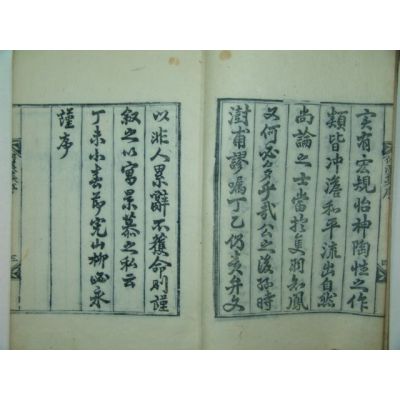 亥有宏規怡神陶性之作
類皆冲澹和平流出自然
尚論之士當於隻羽知鳳
又何必多乎哉公之後孫時
澍甫謬囑丁乙仍責弁文
以非人累辭不獲命則謹
叙之以寓景慕之私云
丁未小春節完山柳永
謹序